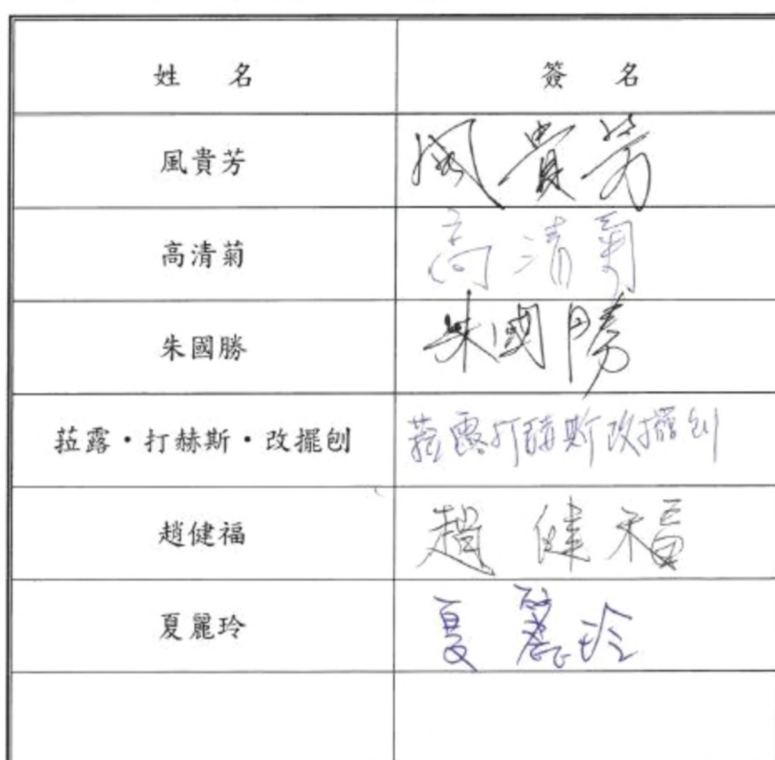 姓 名 簽 名
風貴芳 風貴芳
高清菊 高清菊
朱國勝 朱國勝
菈露・打赫斯・改擺刨 菈露打赫斯改擺刨
趙健福 趙健福
夏麗玲 夏麗玲